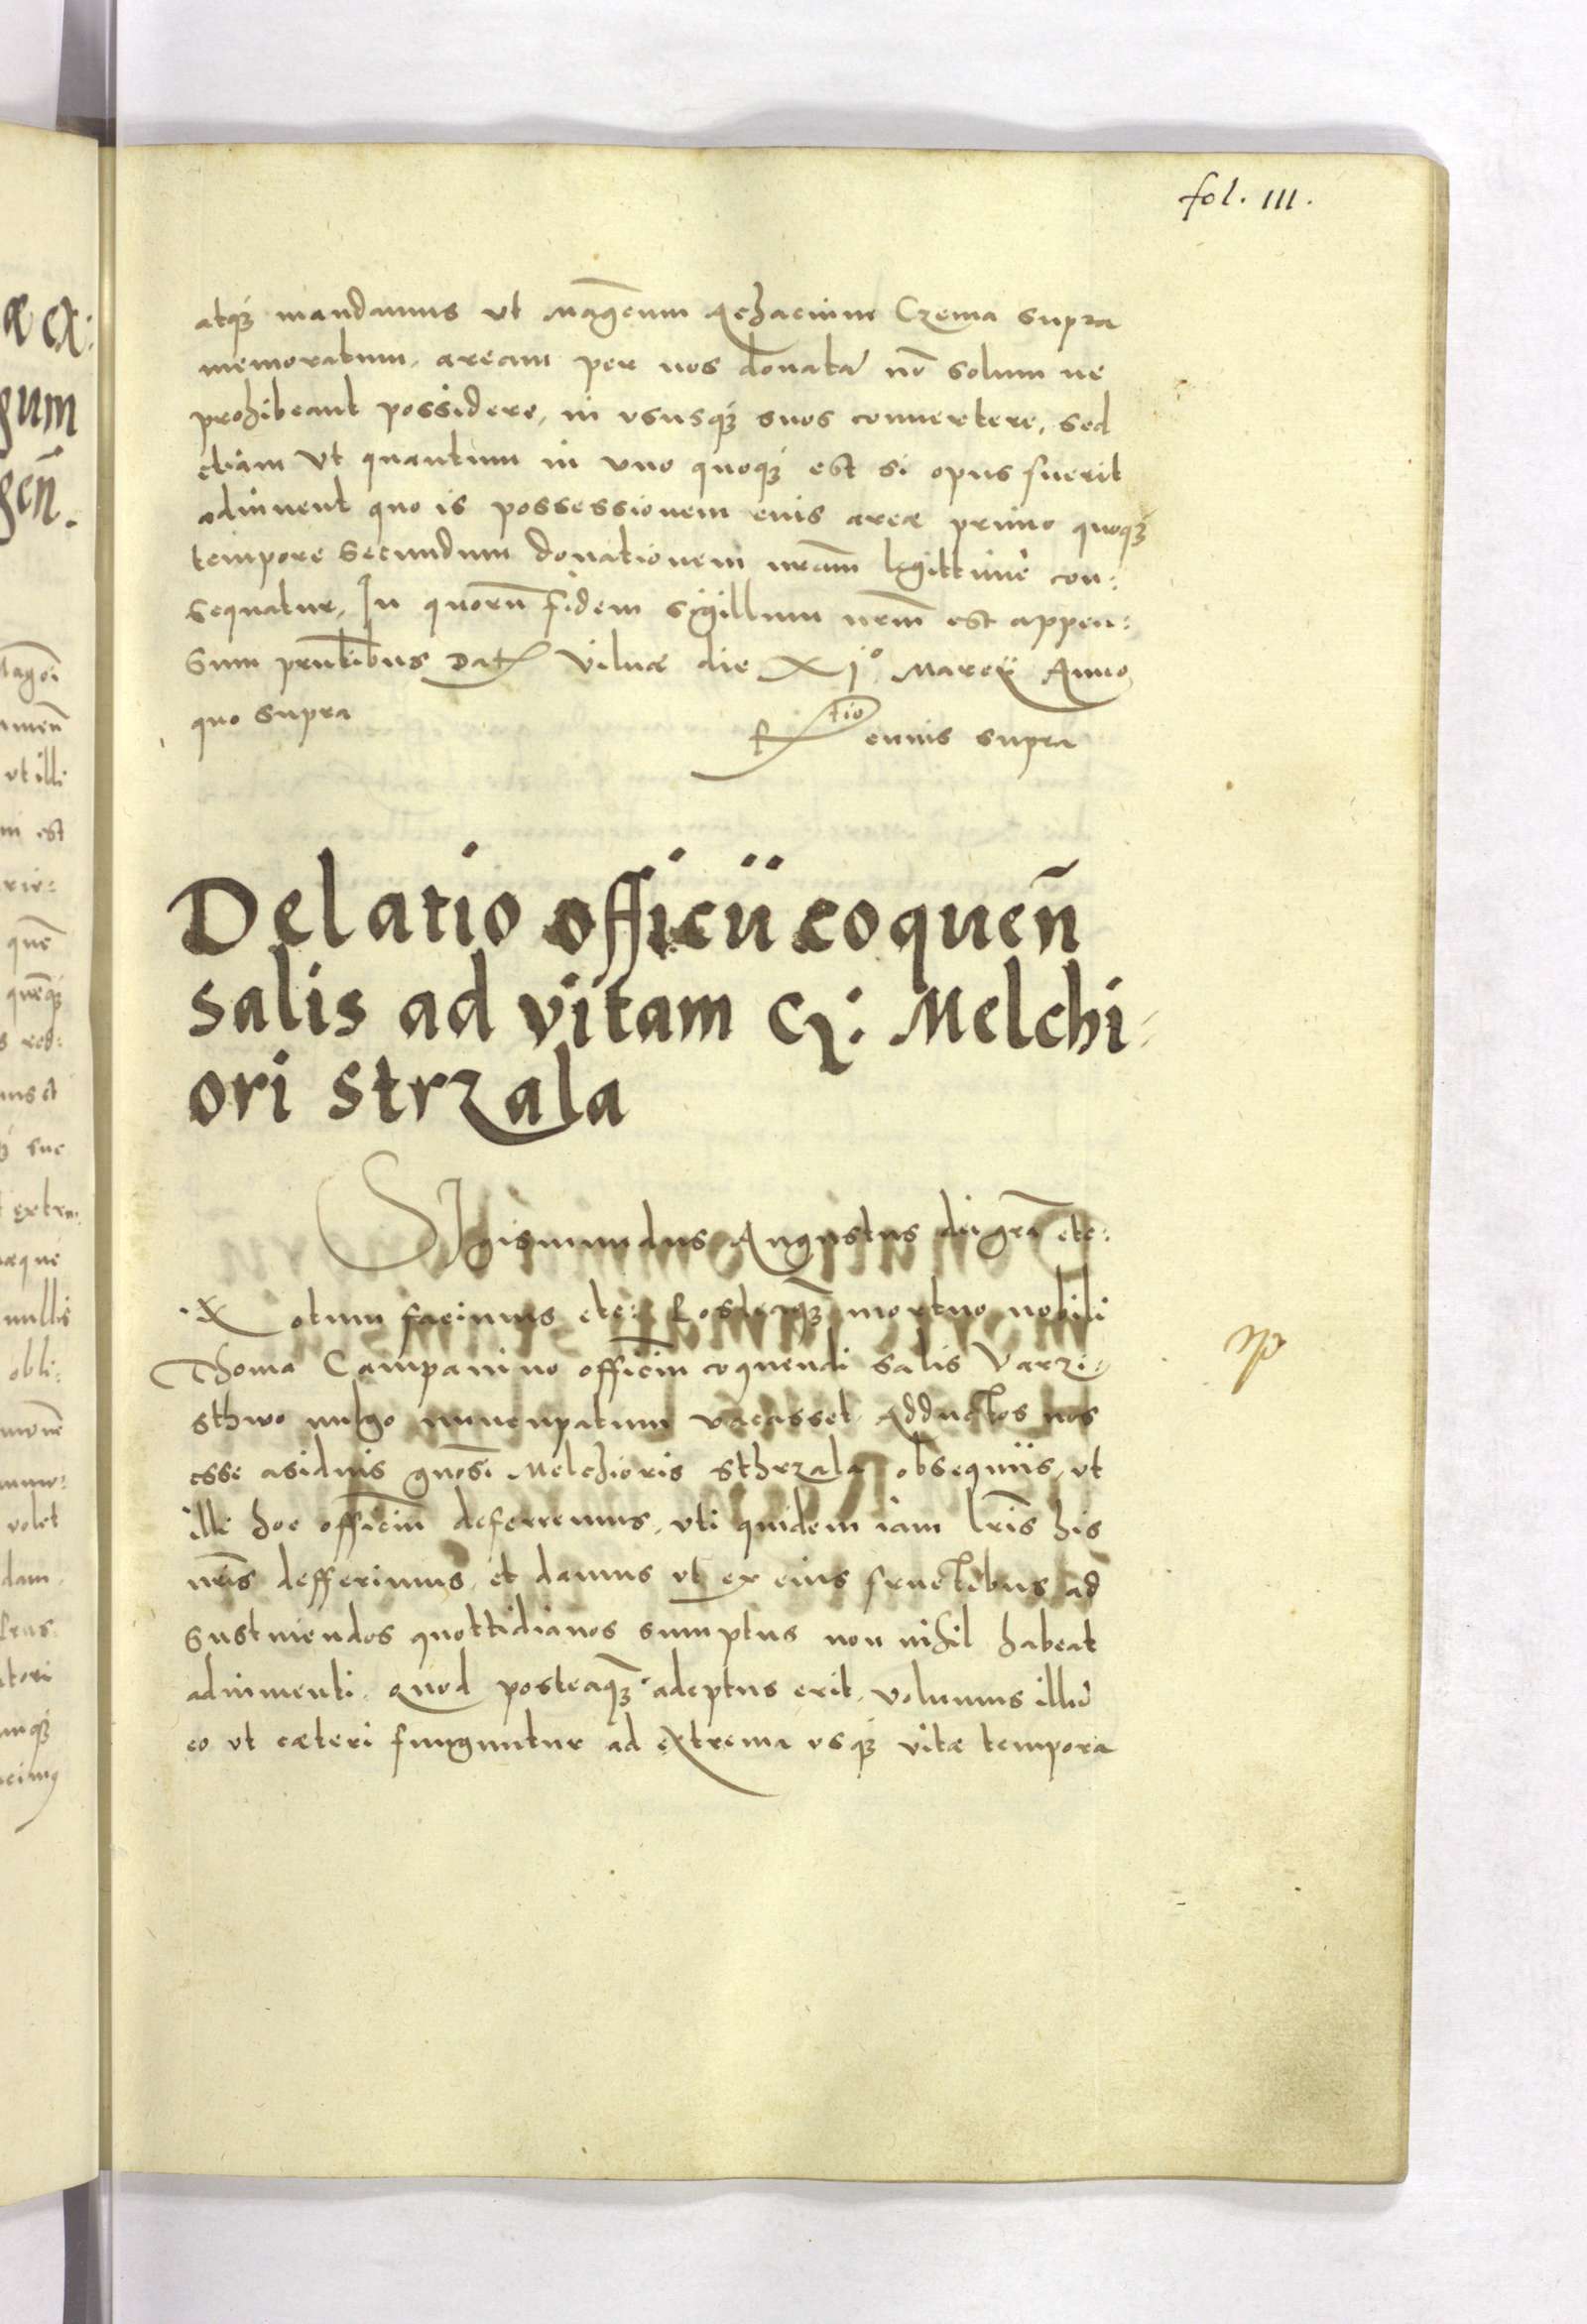 fol. III.
atq₃ mandamus ut Magcum Achacium Czema supra
memoratum, aream per nos donatā nō solum ne
prohibeant possidere, in ususq₃ suos convertere, sed
etiam ut quantum in uno quoq₃ est si opus fuerit
adiuvent quo is possessionem eius areæ primo quoq₃
tempore secundum donationem nr̄am legittime con:
sequatur, In quorū fidem sigillum nr̄m est appen:
sum pn̄tibus Dat Vilnæ die XI° Marcÿ Anno
quo supra
Rtio eiuus supra
Delatio officii coquen̄
salis ad vitam G: Melchi-
ori Strzala
Sigismundus Augustus dei gr̄a etc:
Notum facimus etc: Posteaq₃ mortuo nobili
Thoma Campanino officiū coquendi salis Varzi-
sthwo vulgo nuncupatum vacasset, Adductos nos
esse asiduis gnosi Melchioris Sthrzala obsequiis, ut
illi hoc officiū deferremus, uti quidem iam lr̄is his
nr̄is defferimus, et damus ut ex eius fructibus ad
sustinendos quottidianos sumptus non nihil habeat
adiumenti, Quod posteaq₃ adeptus erit, volumus illū
eo ut cæteri funguntur ad extrema usq₃ vitæ tempora